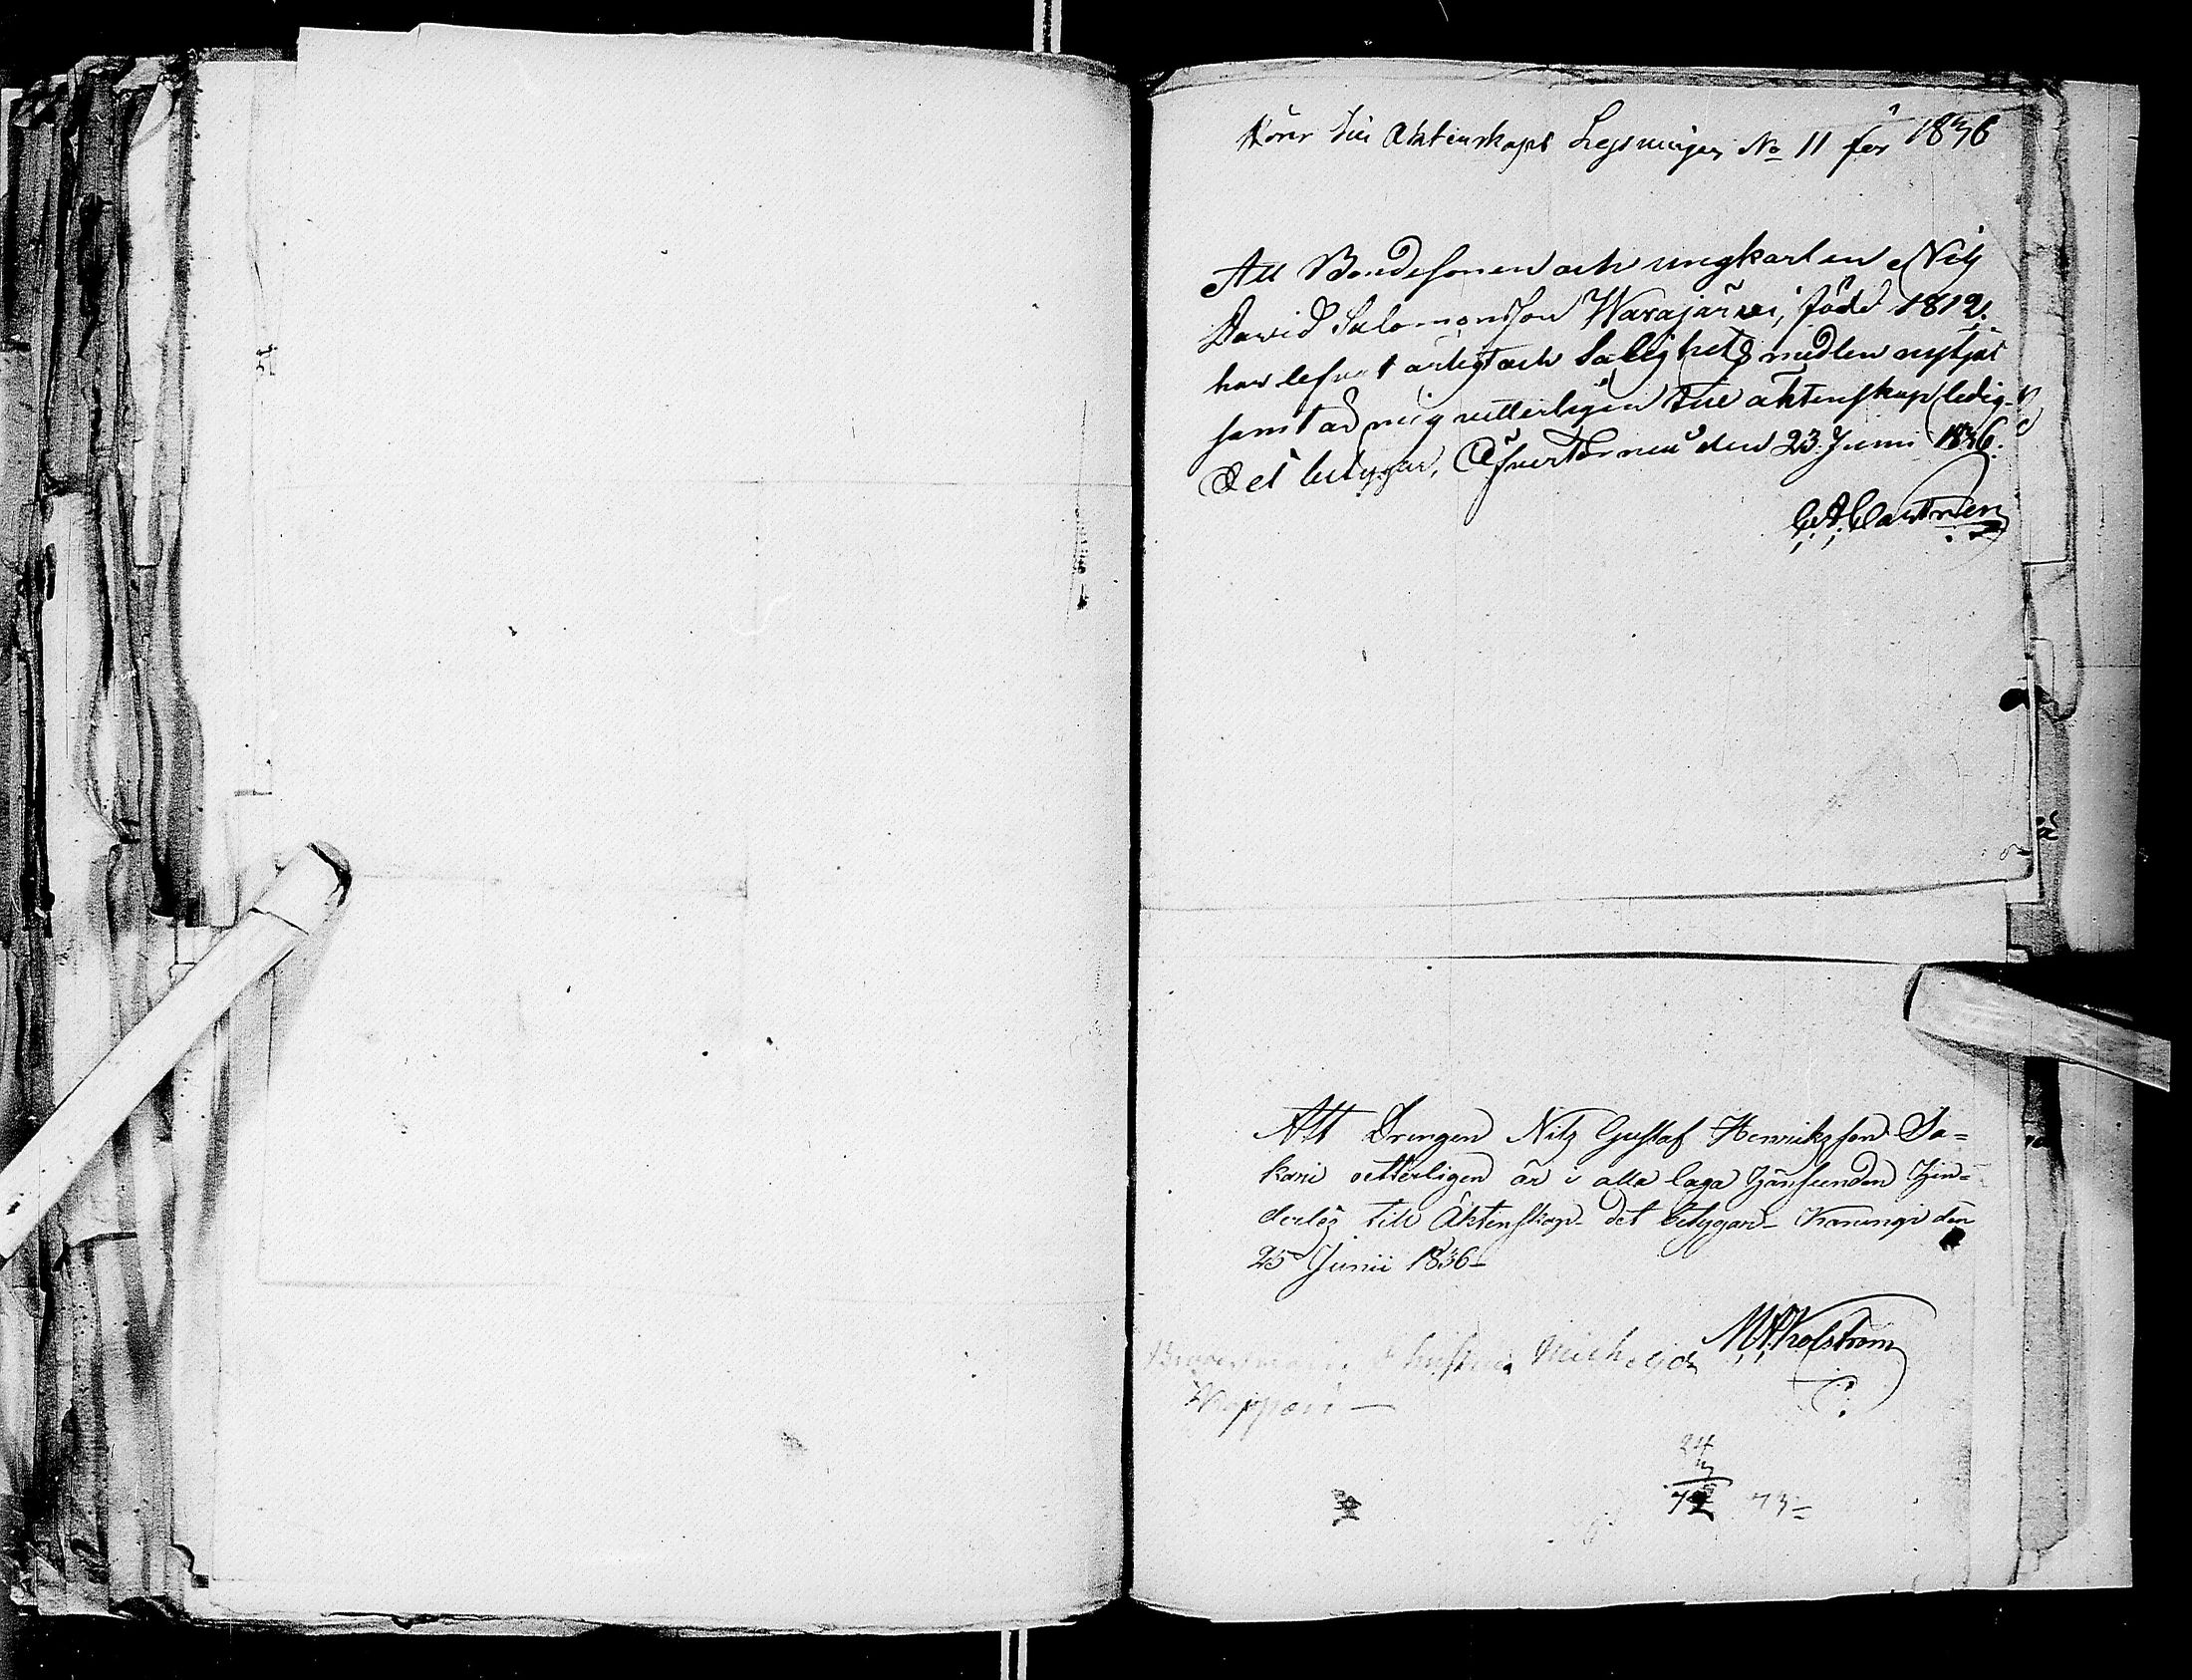 Hörer till Äktenskaps Lysningen No 11 för 1836
Att Bondesonen och ungkarlen Nils
David Salomonsson Warajärvi, född 1812.
har lefvat ärligt och Salighets medlen nyttjat
samt är mig vetterligen till äktenskap ledig,
Det betygar, Öfvertorneå den 23 Juni 1836.
C. A. Castrén
Att Drengen Nils Gustaf Henriksson Sa-
kari vetterligen är i alla laga hänseenden hin-
derlös till Äktenskap det betygar Karungi den
25 Junii 1836
M. A. Kolström
Christina
24
3
72 73